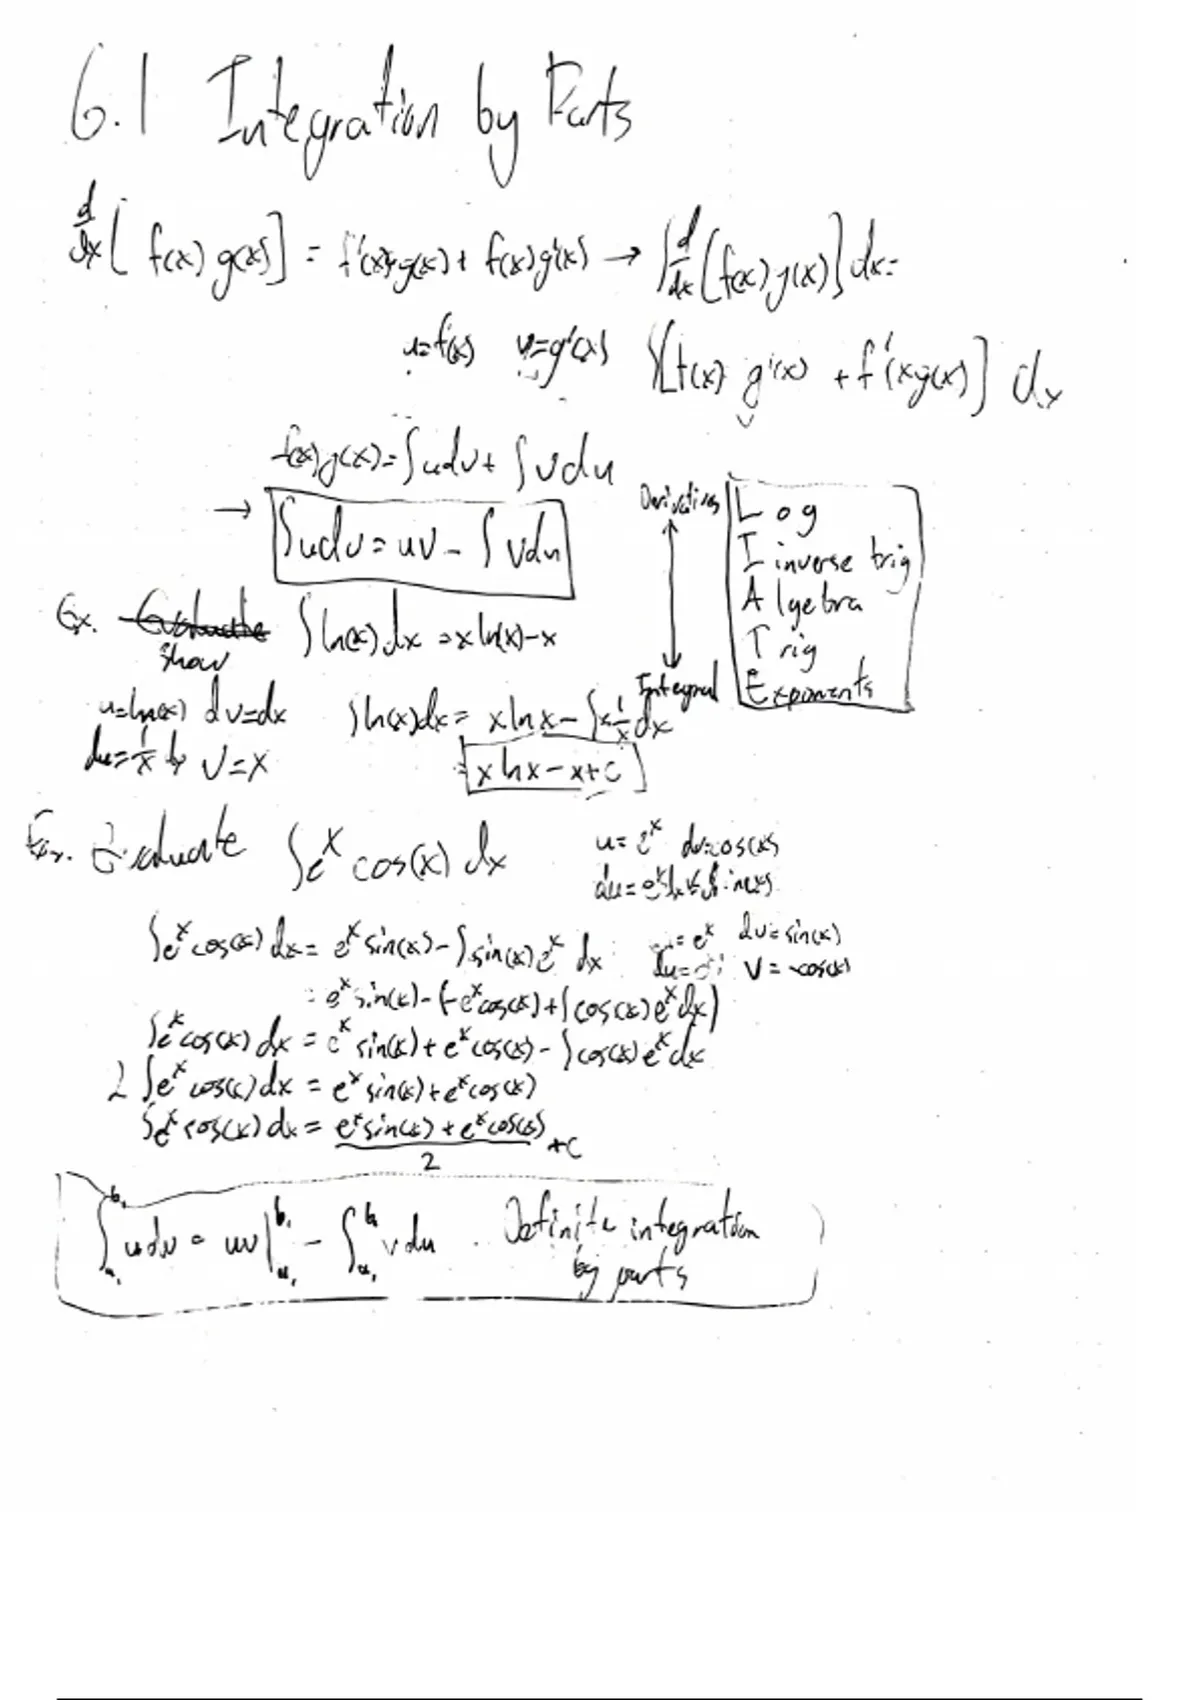 6.1 Integration by Parts
d/dx [ f(x) g(x) ] = f'(x) g(x) + f(x) g'(x) → ∫ d/dx [f(x) g(x)] dx =
u=f(x) v=g'(x) ∫[f(x) g'(x) + f'(x)g(x)] dx
f(x)g(x) = ∫udv + ∫vdu
→ ∫udv = uv - ∫vdu
Derivatives
Integral
Log
Inverse trig
Algebra
Trig
Exponents
Ex. Evaluate ∫ln(x) dx = xln(x)-x
Show
u=ln(x) dv=dx ∫ln(x)dx = xlnx - ∫x 1/x dx
du=1/x dx v=x = xlnx-x+c
Ex. Evaluate ∫e^x cos(x) dx u=e^x dv=cos(x)
∫e^x cos(x) dx = e^x sin(x) - ∫sin(x)e^x dx u=e^x dv=sin(x)
v=-cos(x)
= e^x sin(x) - (-e^x cos(x) + ∫cos(x)e^x dx)
∫e^x cos(x) dx = e^x sin(x) + e^x cos(x) - ∫cos(x)e^x dx
2∫e^x cos(x) dx = e^x sin(x) + e^x cos(x)
∫e^x cos(x) dx = (e^x sin(x) + e^x cos(x))/2 + c
∫_a^b udv = uv|_a^b - ∫_a^b vdu . Definite integration
by parts